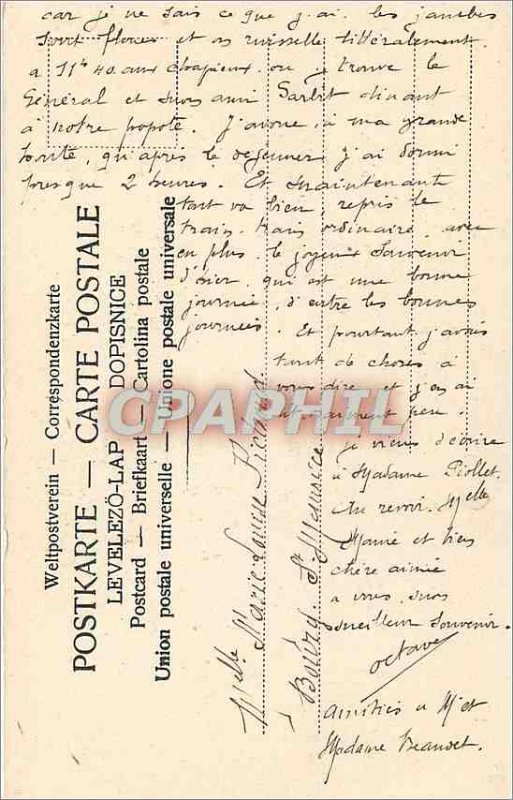 car je ne sais ce que j'ai. les jambes
sont et on ruisselle littéralement.
a 11h40 aux chapieux. ou je trouve le
Général et mon ami Sarlit dinant
à notre popote. J'avoue, à ma grande
honte, qu'après le dejeuner j'ai dormi
presque 2 heures. Et maintenant
tout va bien repris le
train-train ordinaire, avec
en plus le joyeux souvenir
d'hier, qui est une bonne
journée, d'entre les bonnes
journées. Et pourtant j'avais
tant de choses à
vous dire et j'en ai
dit vraiment peu.
je viens d'écrire
à Madame Piollet.
Au revoir. Melle
Mamé et bien
chère aimée
a vous mon
meilleur souvenir.
octave
amitiés a Mr et
Madame Beaudet.
Weltpostverein — Correspondenzkarte
POSTKARTE — CARTE POSTALE
LEVELEZŐ-LAP DOPISNICE
Postcard — Briefkaart — Cartolina postale
Union postale universelle — Unione postale universale
Melle Marie-Louise Picard
à Bourg-St Maurice
CPAPHIL